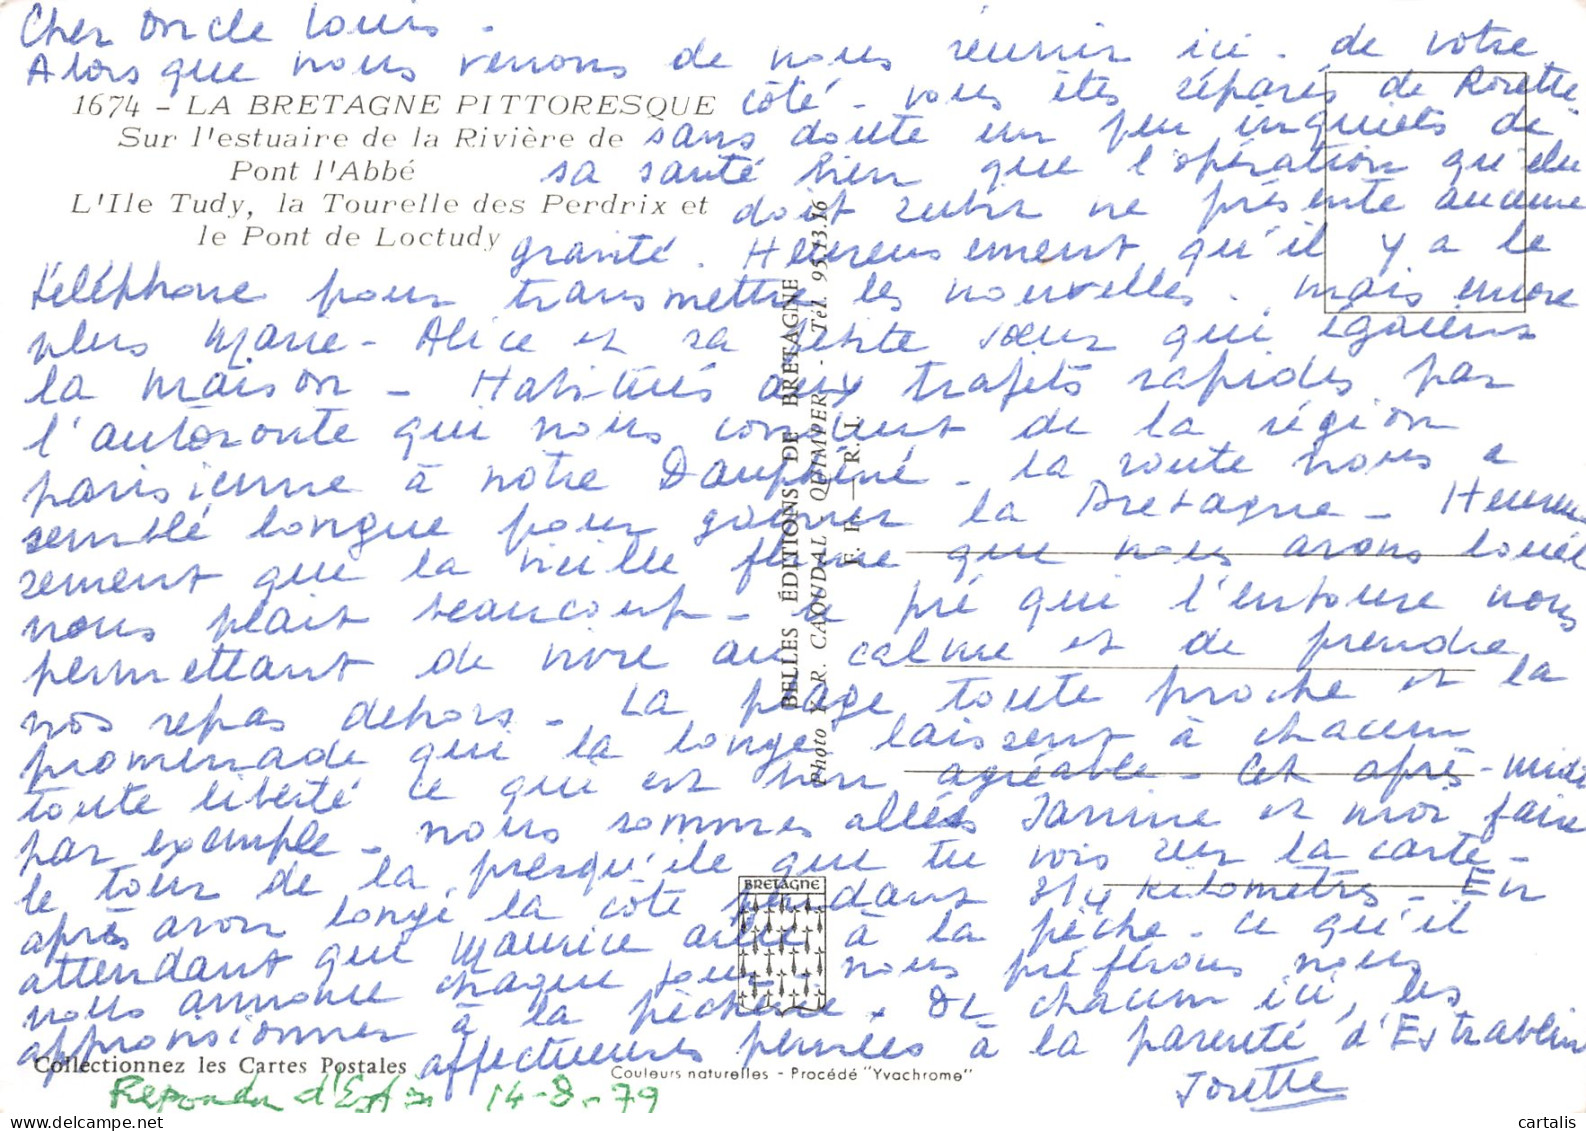 Cher Oncle Louis -
Alors que nous venons de nous réunir ici - de votre
1674 - LA BRETAGNE PITTORESQUE
côté - vous êtes séparés de Rosette
Sur l'estuaire de la Rivière de
sans doute un peu inquiets de
Pont l'Abbé
sa santé bien que l'opération qu'elle
L'Ile Tudy, la Tourelle des Perdrix et
doit subir ne présente aucune
le Pont de Loctudy
gravité. Heureusement qu'il y a le
téléphone pour transmettre les nouvelles. mais encore
plus Marie-Alice et sa petite sœur qui égaient
la maison - Habitués aux trajets rapides par
l'autoroute qui nous conduit de la région
parisienne à notre Dauphiné - la route nous a
semblé longue pour gagner la Bretagne - Heureu
sement que la vieille ferme que nous avons louée
nous plait beaucoup - Le pré qui l'entoure nous
permettant de vivre au calme et de prendre
nos repas dehors - La plage toute proche et la
promenade qui la longe laissent à chacun
toute liberté ce qui est bien agréable - Cet après-midi
par exemple - nous sommes allés Janine et moi faire
le tour de la presqu'île que tu vois sur la carte -
après avoir longé la côte pendant 3/4 kilomètres - En
attendant que Maurice aille à la pêche - ce qu'il
nous annonce chaque jour - nous préférons nous
approvisionner à la pêcherie. De chacun ici, les
affectueuses pensées à la parenté d'Estrablin
Josette
BELLES ÉDITIONS DE BRETAGNE
Photo R. CAOUDAL QUIMPER - Tél. 95.13.16
E. F. — R. I.
BRETAGNE
Collectionnez les Cartes Postales
Couleurs naturelles - Procédé "Yvachrome"
Repondu 14-8-79
www.cartalis.com